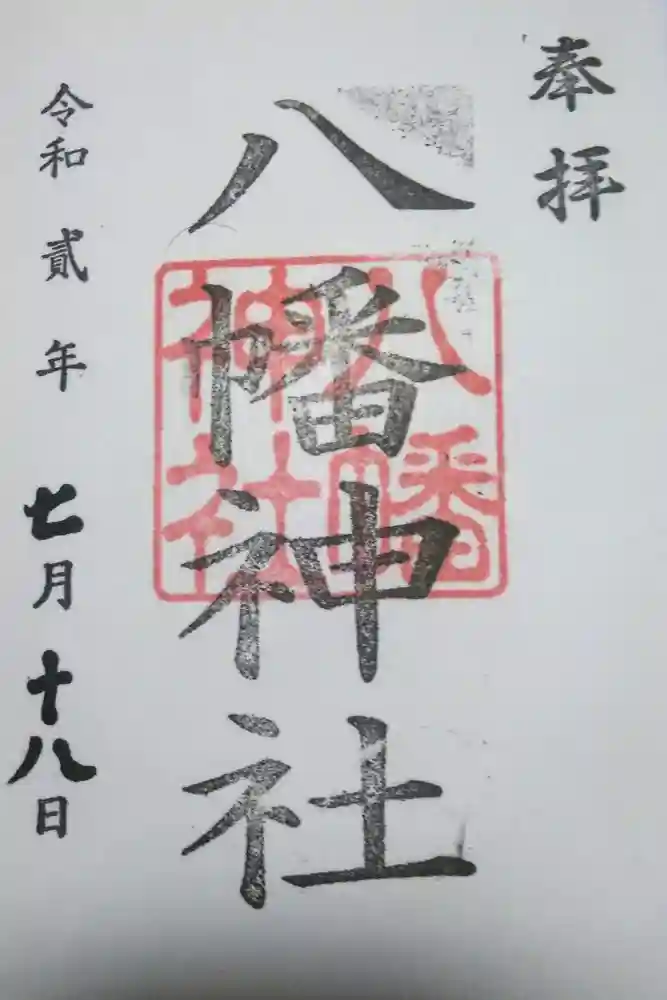 奉拝
八幡神社
八幡
神社
令和貳年七月十八日